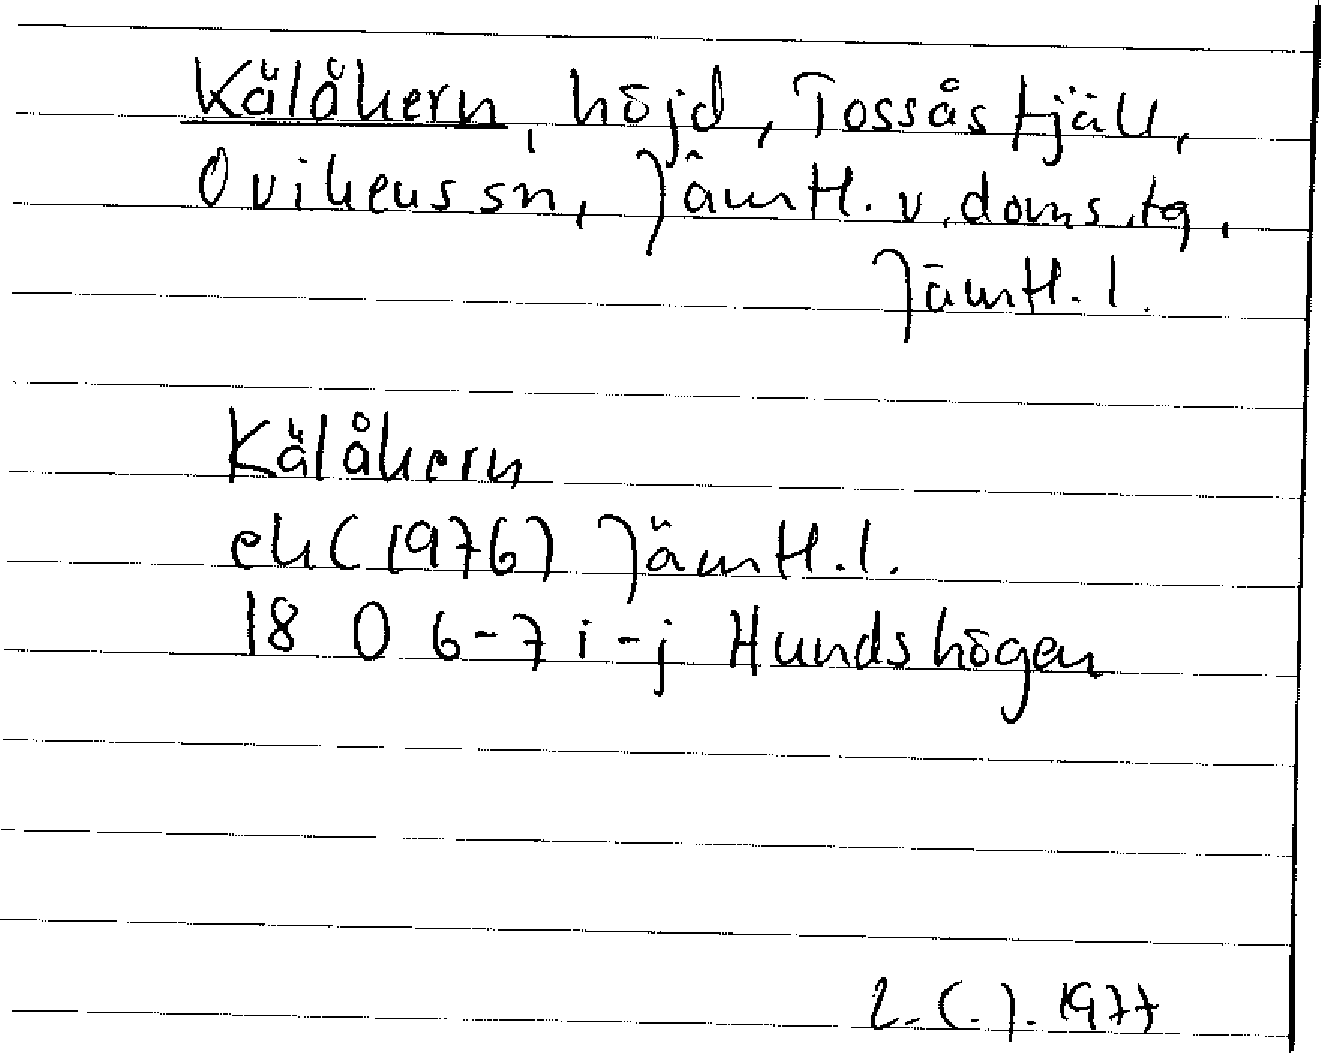 Kälåkern, höjd, Tossåsfjäll,
Ovikens sn, Jämtl. v. doms.tg,
Jämtl. l.
Kälåkern
ek (1976) Jämtl. l.
18 O 6-7 i-j Hundshögen
L.C.J. 1977